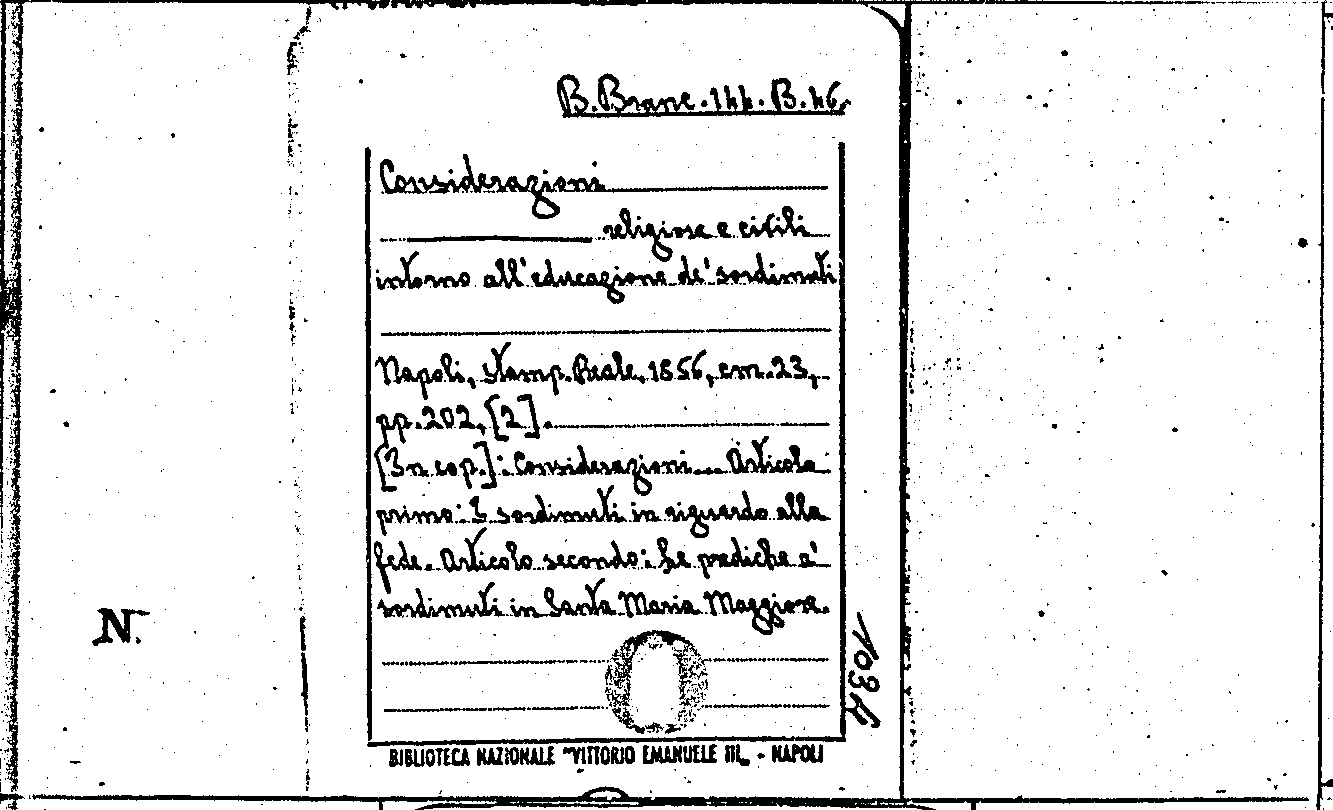 B. Branc. 144. B. 46.
Considerazioni
religiose e civili
intorno all'educazione de' sordimuti
Napoli, Stamp. Reale, 1856, cm. 23,
pp. 202, [2].
[In cop.]: Considerazioni... Articolo
primo: I sordimuti in riguardo alla
fede. Articolo secondo: Le prediche a'
sordimuti in Santa Maria Maggiore.
1034
BIBLIOTECA NAZIONALE "VITTORIO EMANUELE III„ - NAPOLI
N.